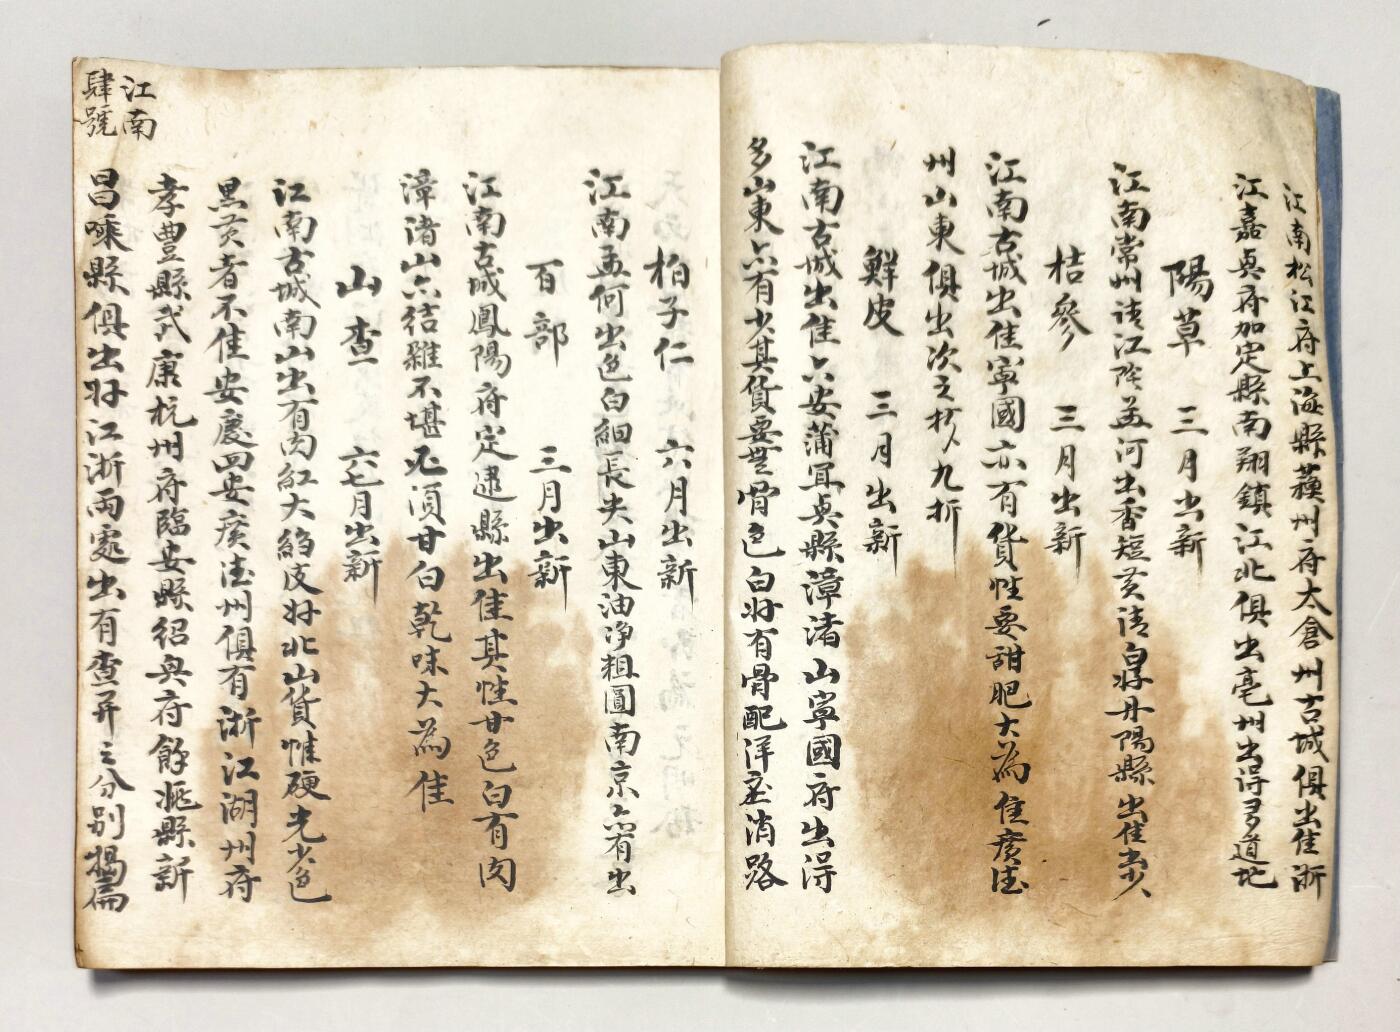 江南松江府上海縣蘓州府太倉州古城俱出佳浙
江嘉興府加定縣南翔鎮江北俱出亳州出得多道地
陽草　三月出新
江南常州靖江降孟河出香短黃清白好丹陽縣出佳出少
桔參　三月出新
江南古城出佳寧國亦有貨性要甜肥大為佳廣德
州山東俱出次之九折
鮮皮　三月出新
江南古城出佳六安蒲耳與縣漳渚山寧國府出得
多山東亦有少其貨要無骨色白好有骨配洋庄消路
柏子仁　六月出新
江南孟何出色白細長尖山東油净粗圓南京亦有出
百部　三月出新
江南古城鳳陽府定逮縣出佳其性甘色白有肉
漳渚山亦結雜不堪須甘白乾味大為佳
山查　六七月出新
江南古城南山出有肉紅大縐皮好北山貨惟硬光少色
黑黃者不佳安慶四安廣德州俱有浙江湖州府
孝豐縣武康杭州府臨安縣紹興府餘姚縣新
昌嵊縣俱出好江浙両處出有查开之分別楊扁
江南
肆號